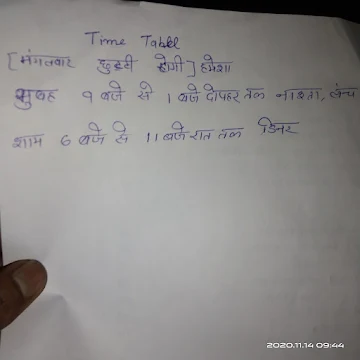 Time Tabel
[मंगलवार छुट्टी होगी] हमेशा
सुबह 9 बजे से 1 बजे दोपहर तक नाश्ता, लंच
शाम 6 बजे से 11 बजे रात तक डिनर
2020.11.14 09:44